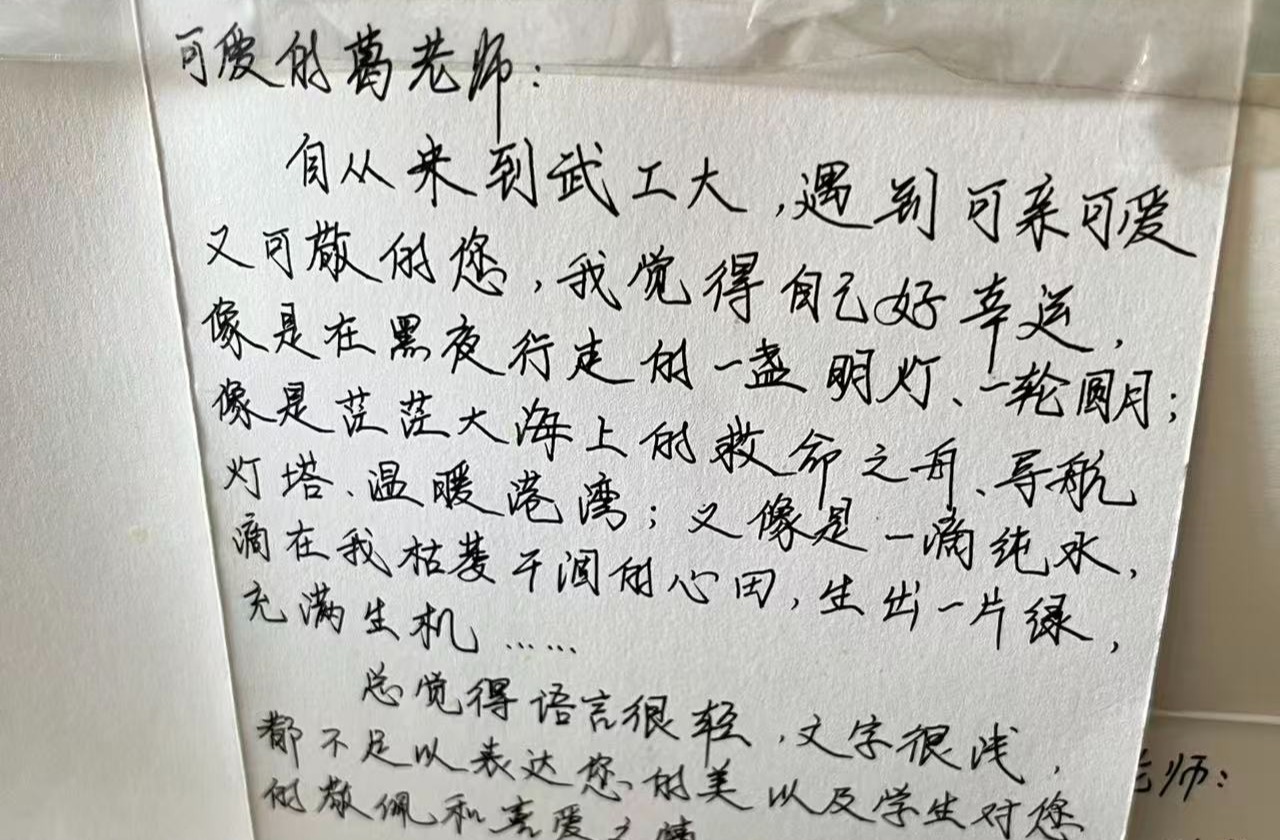 可爱的葛老师：
自从来到武工大，遇到可亲可爱
又可敬的您，我觉得自己好幸运，
像是在黑夜行走的一盏明灯、一轮圆月；
像是茫茫大海上的救命之舟、导航
灯塔、温暖港湾；又像是一滴纯水，
滴在我枯萎干涸的心田，生出一片绿，
充满生机……
总觉得语言很轻，文字很浅，
都不足以表达您的美以及学生对您
的敬佩和喜爱之情
老师：